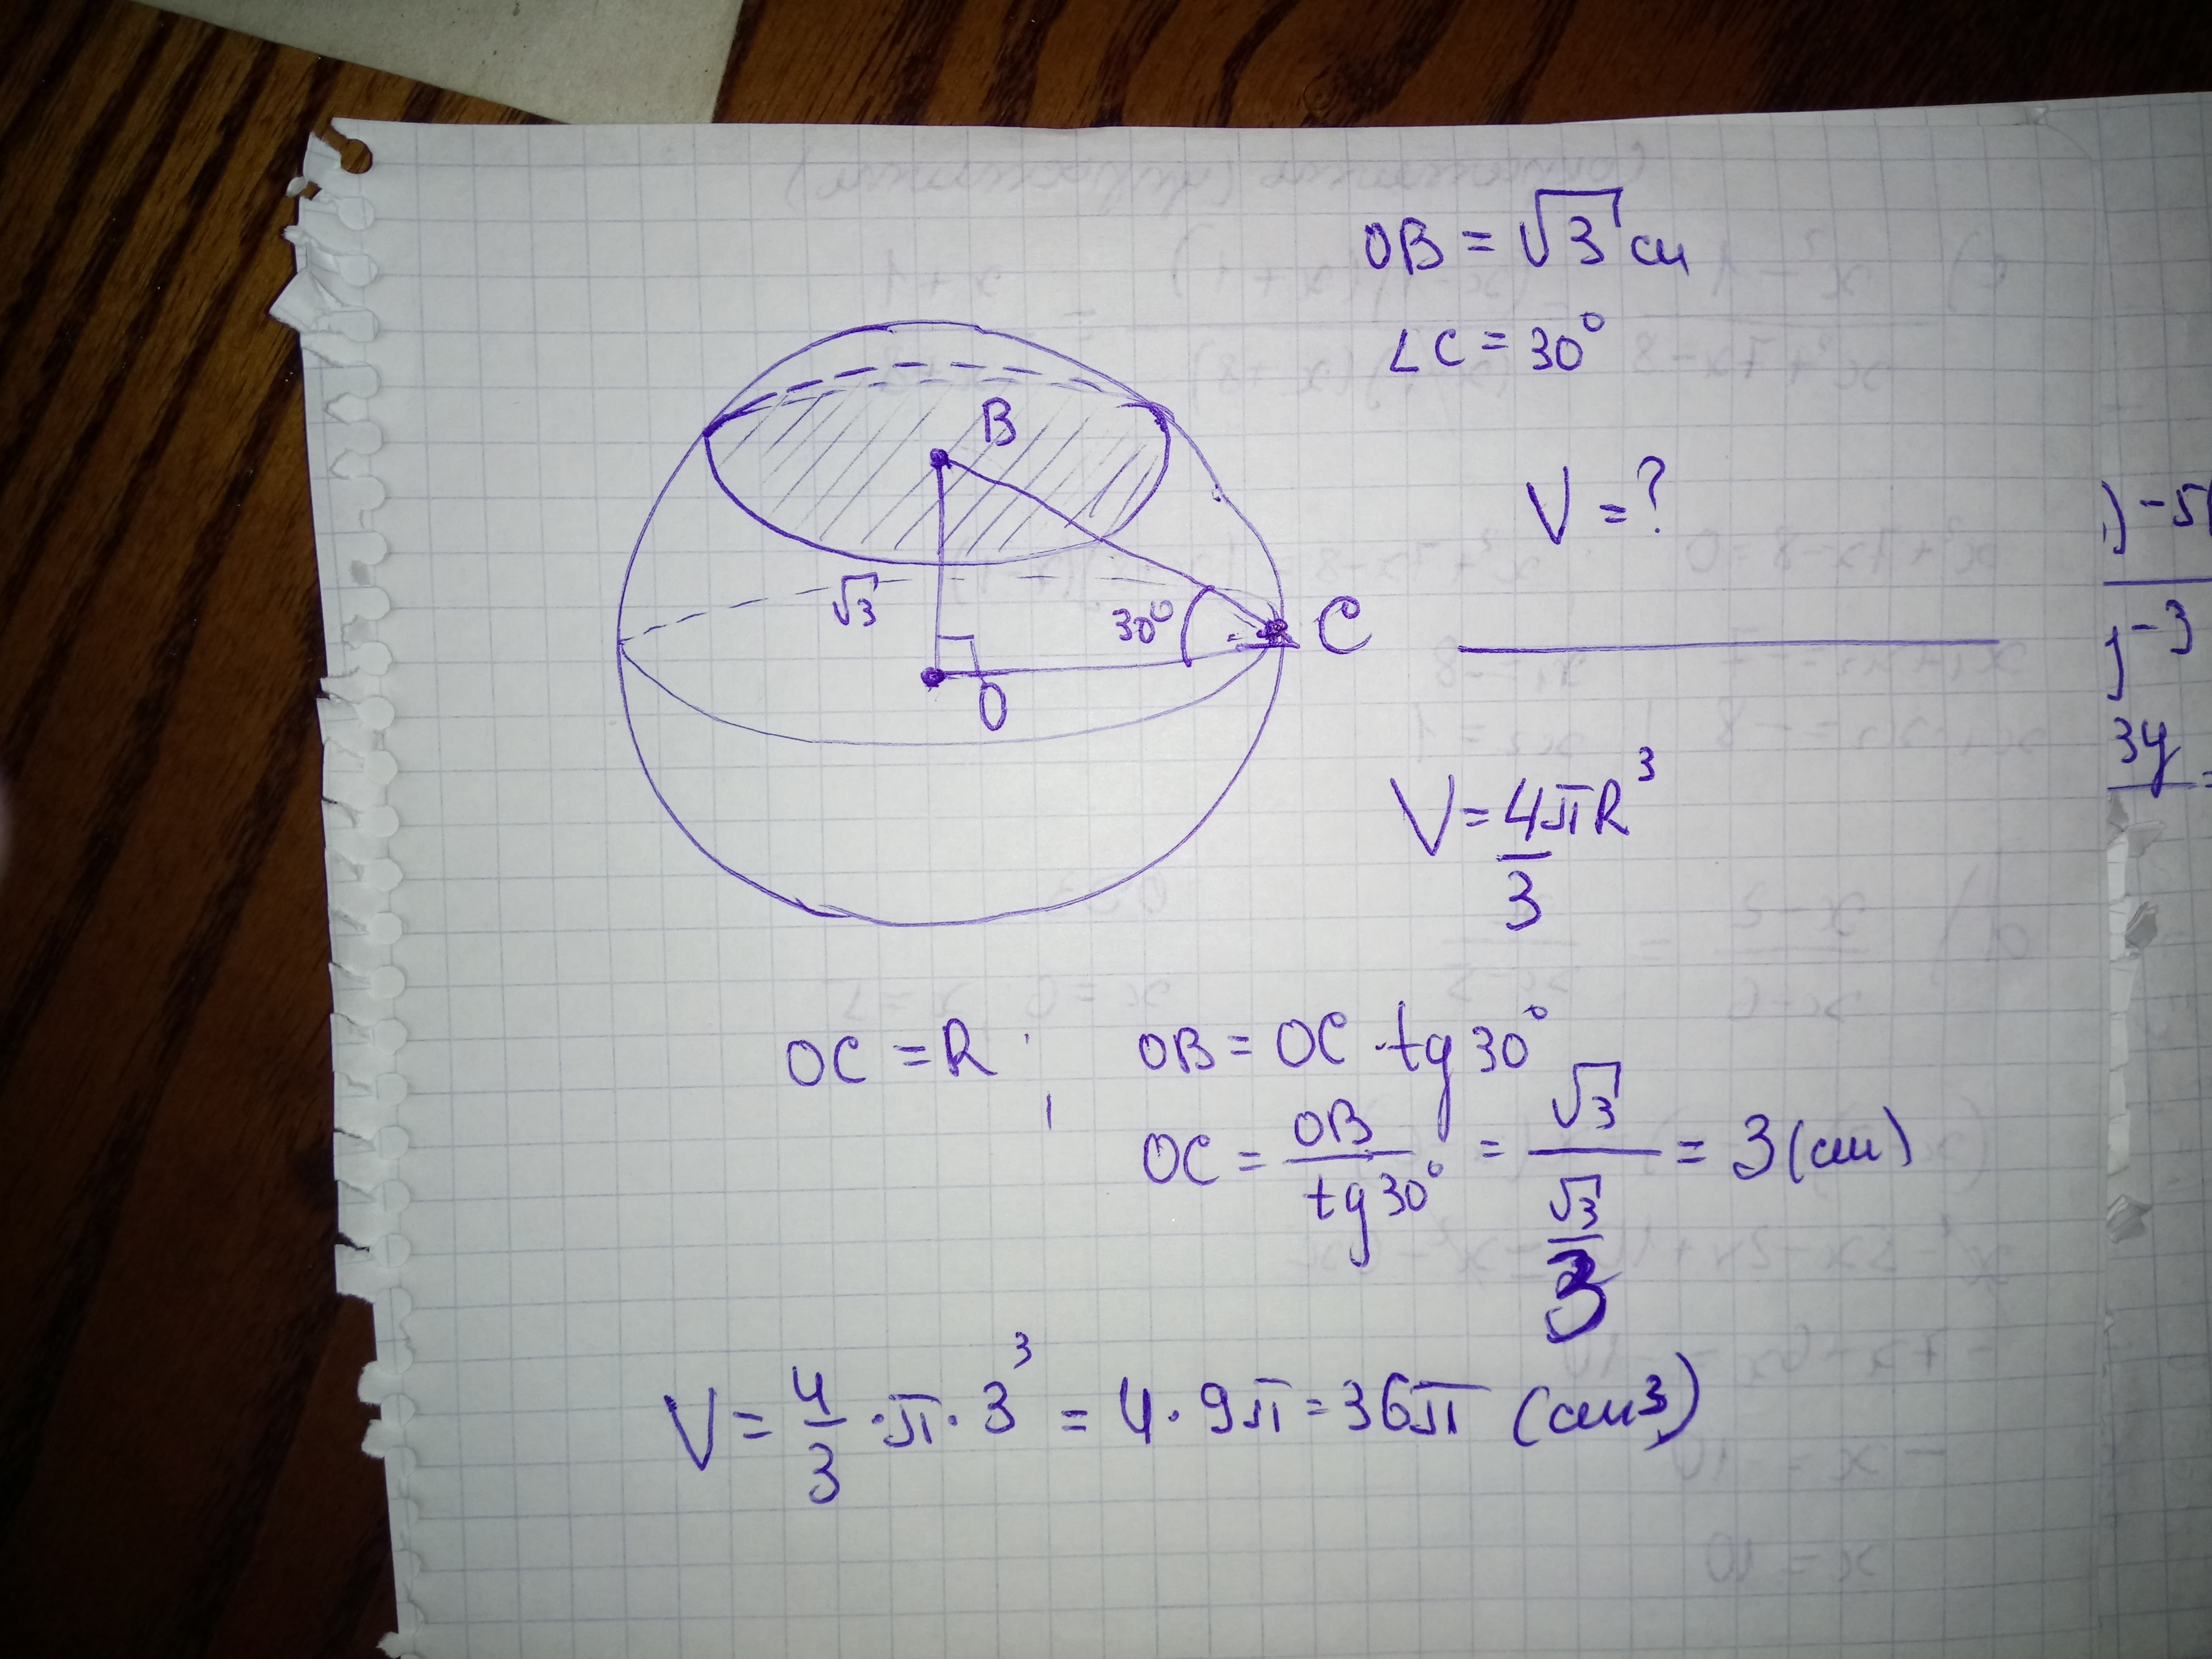 OB = √3 см
∠C = 30°
B
V = ?
√3
30°
C
O
V = 4/3 πR³
OC = R ; OB = OC · tg 30°
OC = OB / tg 30° = √3 / (√3/3) = 3 (см)
V = 4/3 · π · 3³ = 4 · 9π = 36π (см³)